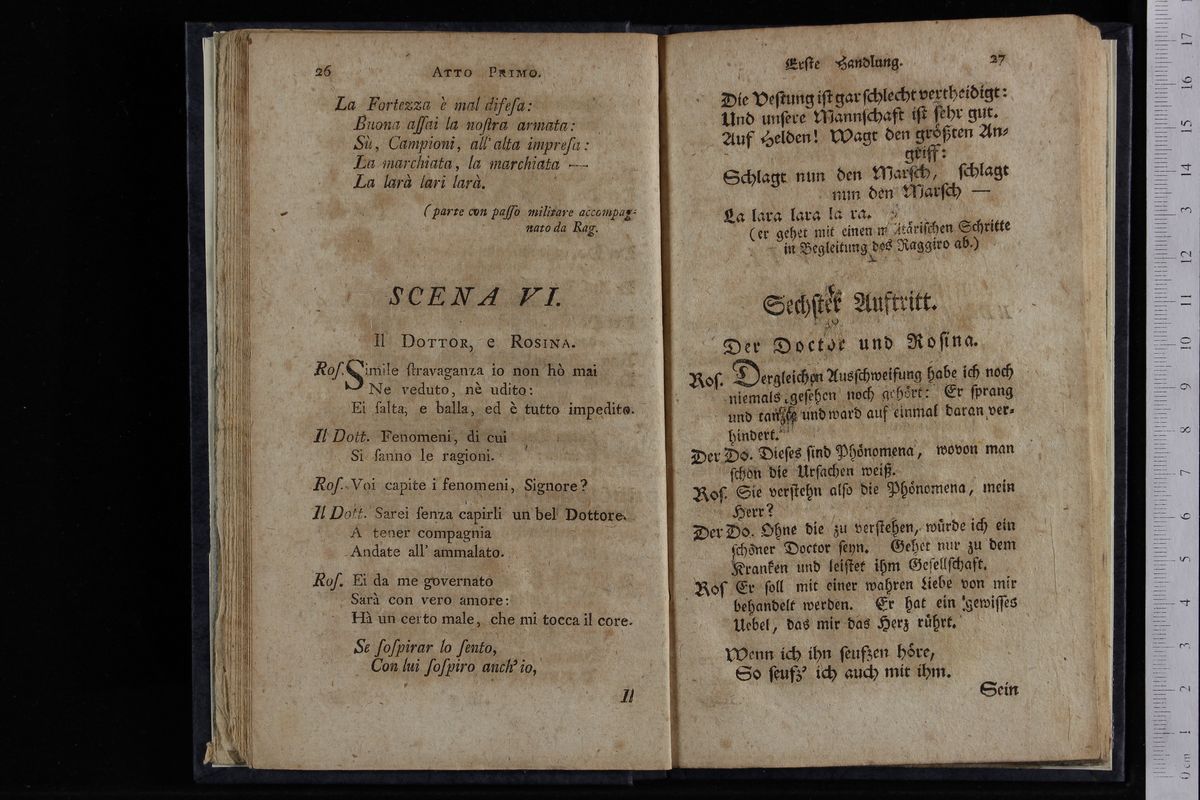 26 ATTO PRIMO.
La Fortezza è mal difeſa:
Buona aſſai la noſtra armata:
Sù, Campioni, all'alta impreſa:
La marchiata, la marchiata —
La larà lari larà.
(parte con paſſo militare accompag-
nato da Rag.
SCENA VI.
Il DOTTOR, e ROSINA.
Roſ. Simile ſtravaganza io non hò mai
Ne veduto, nè udito:
Ei ſalta, e balla, ed è tutto impedito.
Il Dott. Fenomeni, di cui
Si ſanno le ragioni.
Roſ. Voi capite i fenomeni, Signore?
Il Dott. Sarei ſenza capirli un bel Dottore.
A tener compagnia
Andate all' ammalato.
Roſ. Ei da me governato
Sarà con vero amore:
Hà un certo male, che mi tocca il core.
Se ſoſpirar lo ſento,
Con lui ſoſpiro anch' io,
Il
Erſte Handlung. 27
Die Veſtung iſt gar ſchlecht vertheidigt:
Und unſere Mannſchaft iſt ſehr gut.
Auf Helden! Wagt den größten An-
griff:
Schlagt nun den Marſch, ſchlagt
nun den Marſch —
La lara lara la ra.
(er gehet mit einen militäriſchen Schritte
in Begleitung des Raggiro ab.)
Sechster Auftritt.
Der Doctor und Roſina.
Roſ. Dergleichen Ausſchweifung habe ich noch
niemals geſehen noch gehört: Er ſprang
und tanzte und ward auf einmal daran ver-
hindert.
Der Do. Dieſes ſind Phönomena, wovon man
ſchon die Urſachen weiß.
Roſ. Sie verſtehn alſo die Phönomena, mein
Herr?
Der Do. Ohne die zu verſtehen, würde ich ein
ſchöner Doctor ſeyn. Gehet nur zu dem
Kranken und leiſtet ihm Geſellſchaft.
Roſ Er ſoll mit einer wahren Liebe von mir
behandelt werden. Er hat ein gewiſſes
Uebel, das mir das Herz rührt.
Wenn ich ihn ſeufzen höre,
So ſeufz' ich auch mit ihm.
Sein
0 cm 1 2 3 4 5 6 7 8 9 10 11 12 13 14 15 16 17